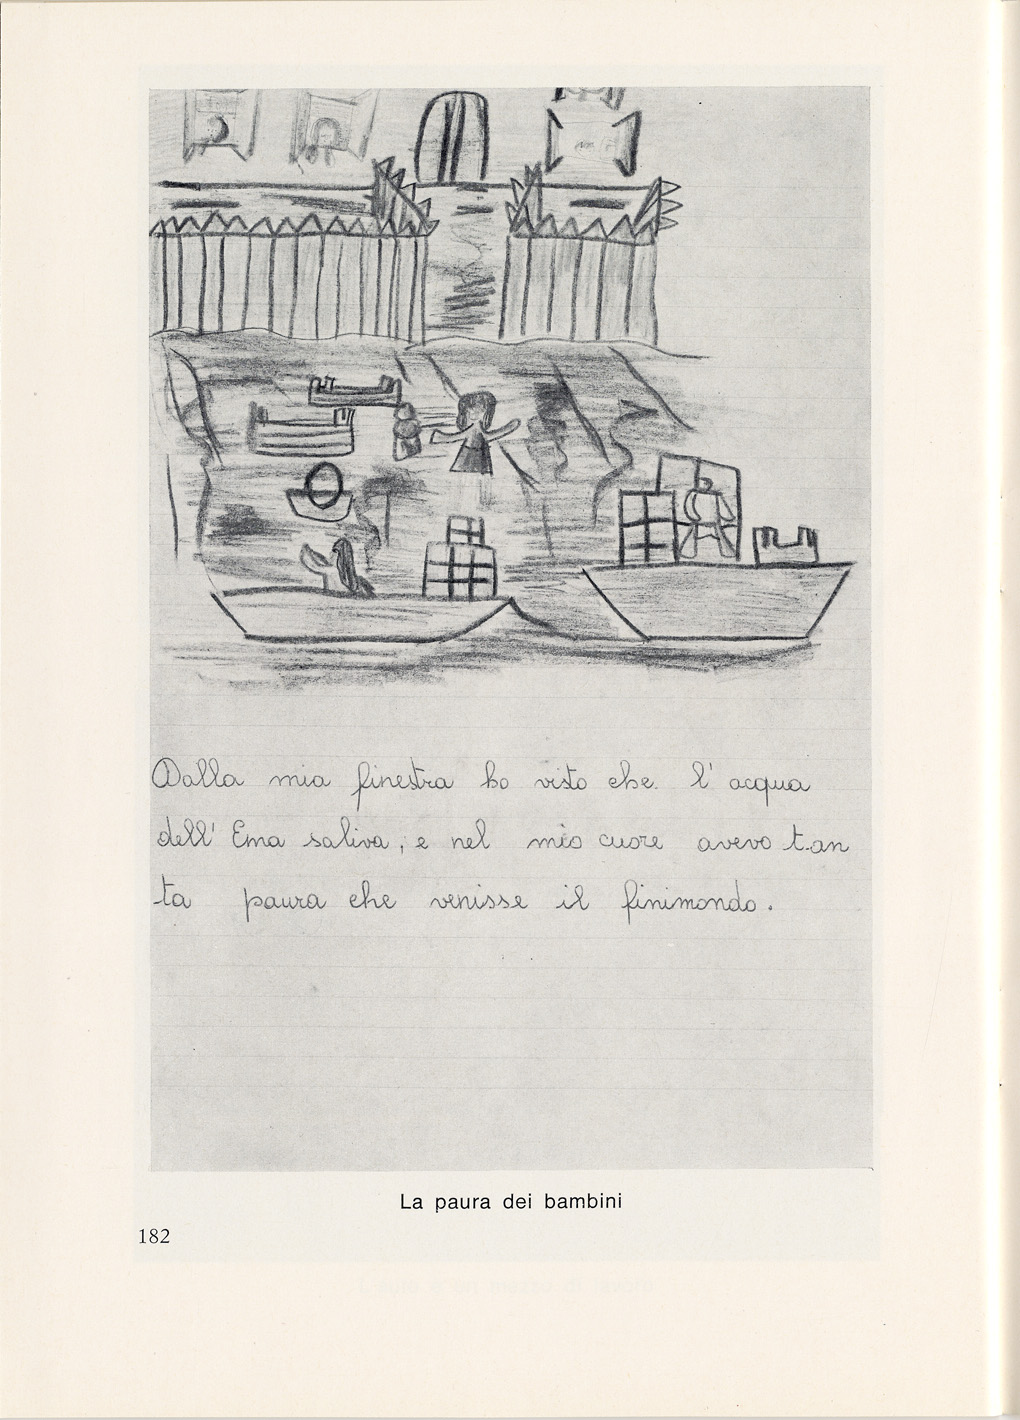 Dalla mia finestra ho visto che l'acqua
dell'Ema saliva, e nel mio cuore avevo tan
ta paura che venisse il finimondo.
La paura dei bambini
182